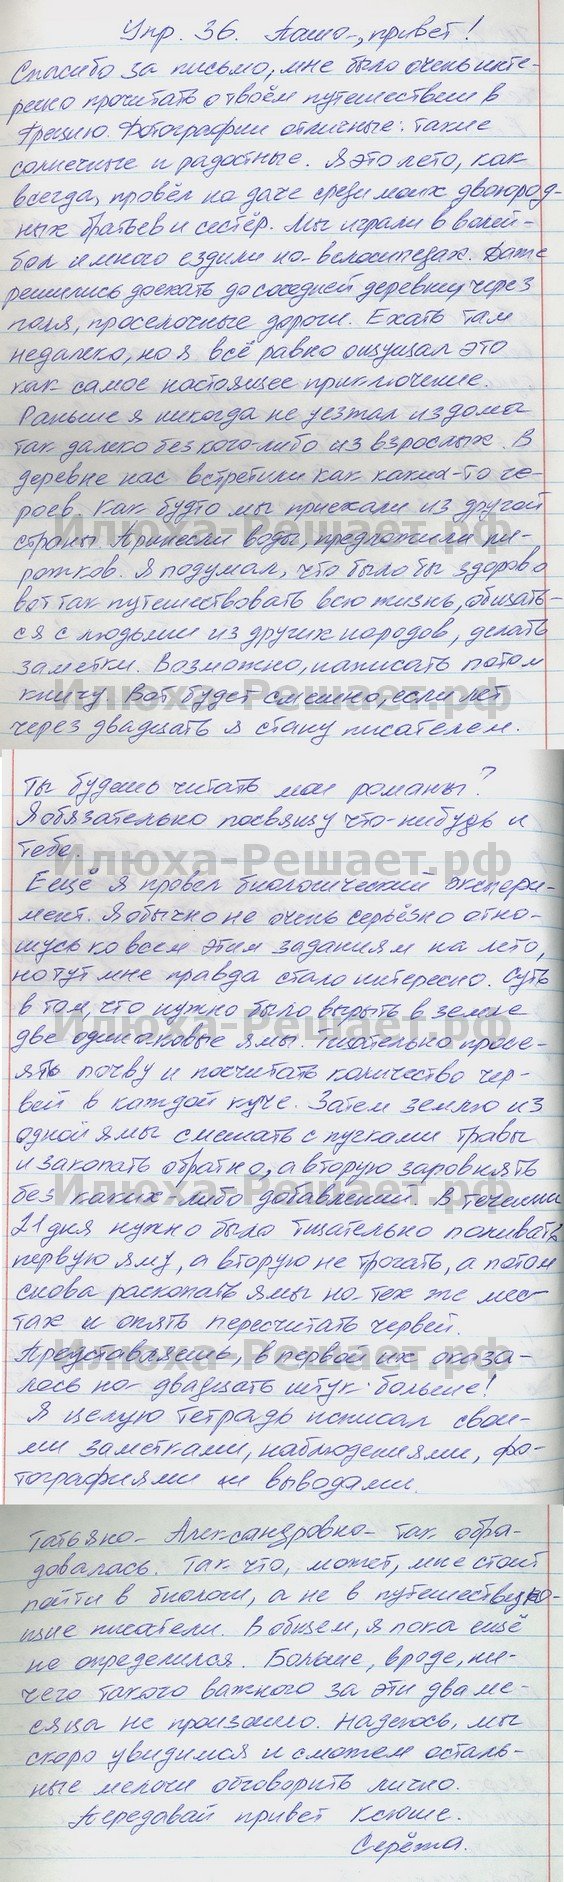 Упр. 36. Паша, привет!
Спасибо за письмо, мне было очень инте-
ресно прочитать о твоём путешествии в
Грецию. Фотографии отличные: такие
солнечные и радостные. Я это лето, как
всегда, провёл на даче среди моих двоюрод-
ных братьев и сестёр. Мы играли в волей-
бол и много ездили на велосипедах. Даже
решились доехать до соседней деревни через
поля, проселочные дороги. Ехать там
недалеко, но я всё равно ощущал это
как самое настоящее приключение.
Раньше я никогда не уезжал из дома
так далеко без кого-либо из взрослых. В
деревне нас встретили как каких-то ге-
роев. Как будто мы приехали из другой
страны. Принесли воды, предложили пи-
рожков. Я подумал, что было бы здорово
вот так путешествовать всю жизнь, общать-
ся с людьми из других народов, делать
заметки. Возможно, написать потом
книгу. Вот будет смешно, если лет
через двадцать я стану писателем.
Ты будешь читать мои романы?
Я обязательно посвящу что-нибудь и
тебе.
Еещё я провел биологический экспери-
мент. Я обычно не очень серьёзно отно-
шусь ко всем этим заданиям на лето,
но тут мне правда стало интересно. Суть
в том, что нужно было вырыть в земле
две одинаковые ямы. Тщательно просе-
ять почву и посчитать количество чер-
вей в каждой куче. Затем землю из
одной ямы смешать с пучками травы
и закопать обратно, а вторую заровнять
без каких-либо добавлений. В течении
21 дня нужно было тщательно поливать
первую яму, а вторую не трогать, а потом
снова раскопать ямы на тех же мес-
тах и опять пересчитать червей.
Представляешь, в первой их оказа-
лось на двадцать штук больше!
Я целую тетрадь исписал свои-
ми заметками, наблюдениями, фо-
тографиями и выводами.
Татьяна Александровна так обра-
довалась. Так что, может, мне стоит
пойти в биологи, а не в путешествую-
щие писатели. В общем, я пока ещё
не определился. Больше, вроде, ни-
чего такого важного за эти два ме-
сяца не произошло. Надеюсь, мы
скоро увидимся и сможем осталь-
ные мелочи обговорить лично.
Передавай привет Ксюше.
Серёжа.
Илюха-Решает.рф
Илюха-Решает.рф
Илюха-Решает.рф
Илюха-Решает.рф
Илюха-Решает.рф
Илюха-Решает.рф